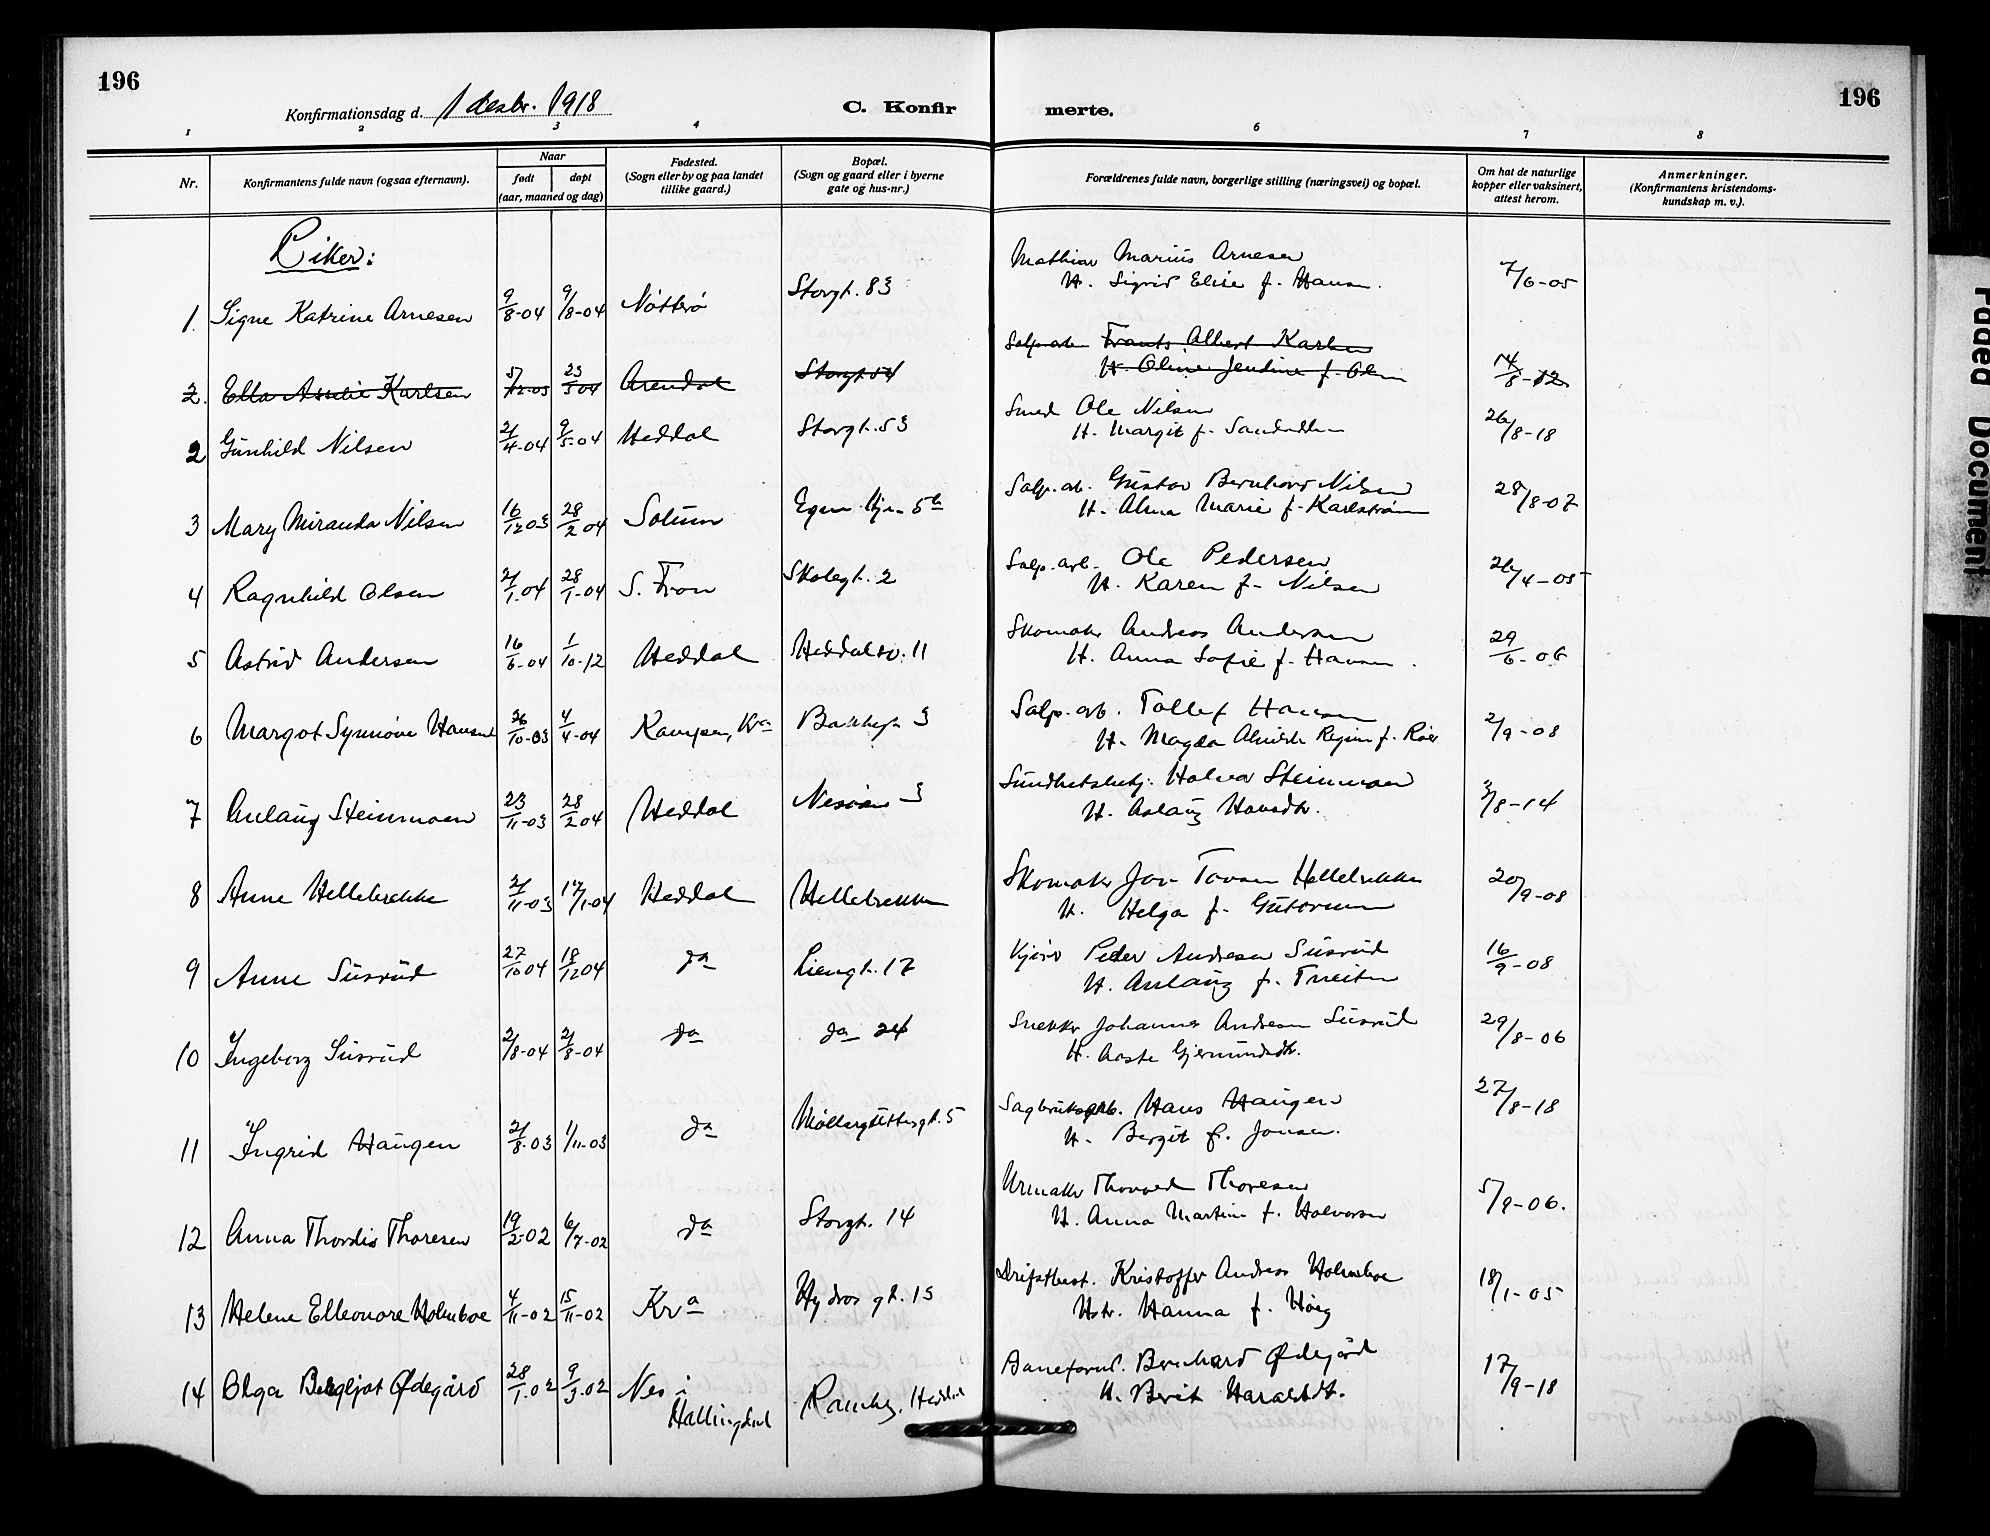 196
196
Konfirmationsdag d. 1 desbr. 1918
C. Konfir
merte.
1 2 3 4 6 7 8
Nr.
Konfirmantens fulde navn (ogsaa efternavn).
Naar
født
døpt
(aar, maaned og dag)
Fødested.
(Sogn eller by og paa landet
tillike gaard.)
Bopæl.
(Sogn og gaard eller i byerne
gate og hus-nr.)
Forældrenes fulde navn, borgerlige stilling (næringsvei) og bopæl.
Om hat de naturlige
kopper eller vaksinert,
attest herom.
Anmerkninger.
(Konfirmantens kristendoms-
kundskap m. v.).
Piker:
1. Signe Katrine Arnesen 9/8-04 9/8-04 Nøtterø Storgt. 83 Mathias Marius Arnesen 7/6-05
H. Sigrid Elise f. Hansen.
2. Ella Karlsen 5/12-03 23/5 04 Arendal Storgt. 54 Salp. arb. Frants Albert Karlsen 14/8-12
H. Oline Jendine f. Olsen
2 Gunhild Nilsen 2/4-04 9/5-04 Heddal Storgt. 53 Smed Ole Nilsen 26/8-18
H. Margit f.
3 Mary Miranda Nilsen 16/12 03 28/2 04 Solum Egen Hjem 5b Salp. arb. Gustav Bernhard Nilsen 28/8-07
H. Alma Marie f. Karlstrøm
4 Ragnhild Olsen 2/1.04 28/1-04 S. Fron Skolegt. 2 Salp. arb. Ole Pedersen 26/4-05
H. Karen f. Nilsen
5 Astrid Andersen 16/6-04 1/10-12 Heddal Heddalsv. 11 Skomaker Andreas Andersen 29/6-06
H. Anna Sofie f. Hansen.
6 Margot Synnøve Hansen 26/10-03 4/4-04 Kampen, Kra Bakkegt 3 Salp. arb. Tollef Hansen 2/9-08
H. Magda f.
7 Aulaug Steinmoen 23/11-03 28/2 04 Heddal Nesøen 3 Sundhetsbetj. Halvor Steinmoen 3/8-14
H. Aslaug Hansdtr.
8 Anne Hellebrekke 2/11-03 17/1-04 Heddal Hellebrekke Skomaker Jon Tovsen Hellebrekke 20/9-08
H. Helga f. Gutormsen
9 Anne Susrud 27/10 04 18/12 04 do Liengt. 17 Kjører Peder Andresen Susrud 16/9-08
H. Aulaug f. Tveiten
10 Ingeborg Susrud 2/8-04 2/8-04 do do 24 Snekker Johannes Andresen Susrud 29/8-06
H. Aaste Gjermundsdtr.
11 Ingrid Haugen 2/8-03 1/11-03 do Møllargutternsgt. 5 Sagbruksarb. Hans Haugen 27/8-18
H. Bergit f. Jonsen.
12 Anna Thordis Thoresen 19/2-02 6/7-02 do Storgt. 14 Urmaker Thorvald Thoresen 5/9-06.
H. Anna Martine f. Halvorsen
13 Helene Elleonore Holmboe 4/11-02 15/11-02 Kra Hydros gt. 15 Driftsbest. Kristoffer Andreas Holmboe 18/1-05
Hstr. Hanna f. Høeg
14 Olga Bergljot Ødegård 28/1.02 9/3-02 Nes i Hallingdal Heddal Baneformd. Bernhard Ødegård 17/9-18
H. Berit Haraldsdtr.
Faded Document